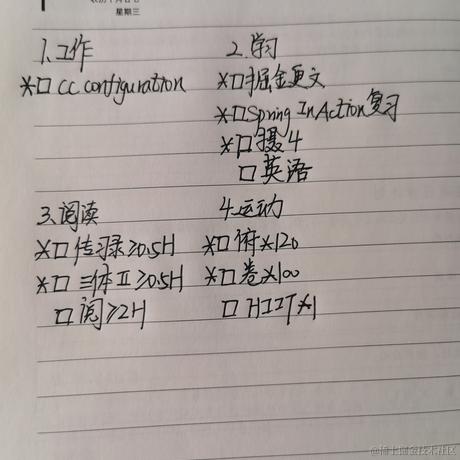 星期三
1.工作
*□ CC configuration
2.学习
*□掘金更文
*□Spring In Action复习
*□摄4
□英语
3.阅读
*□传习录≥0.5H
*□三体Ⅱ≥0.5H
□阅≥2H
4.运动
*□俯×120
*□卷×100
□HIIT×1
@稀土掘金技术社区